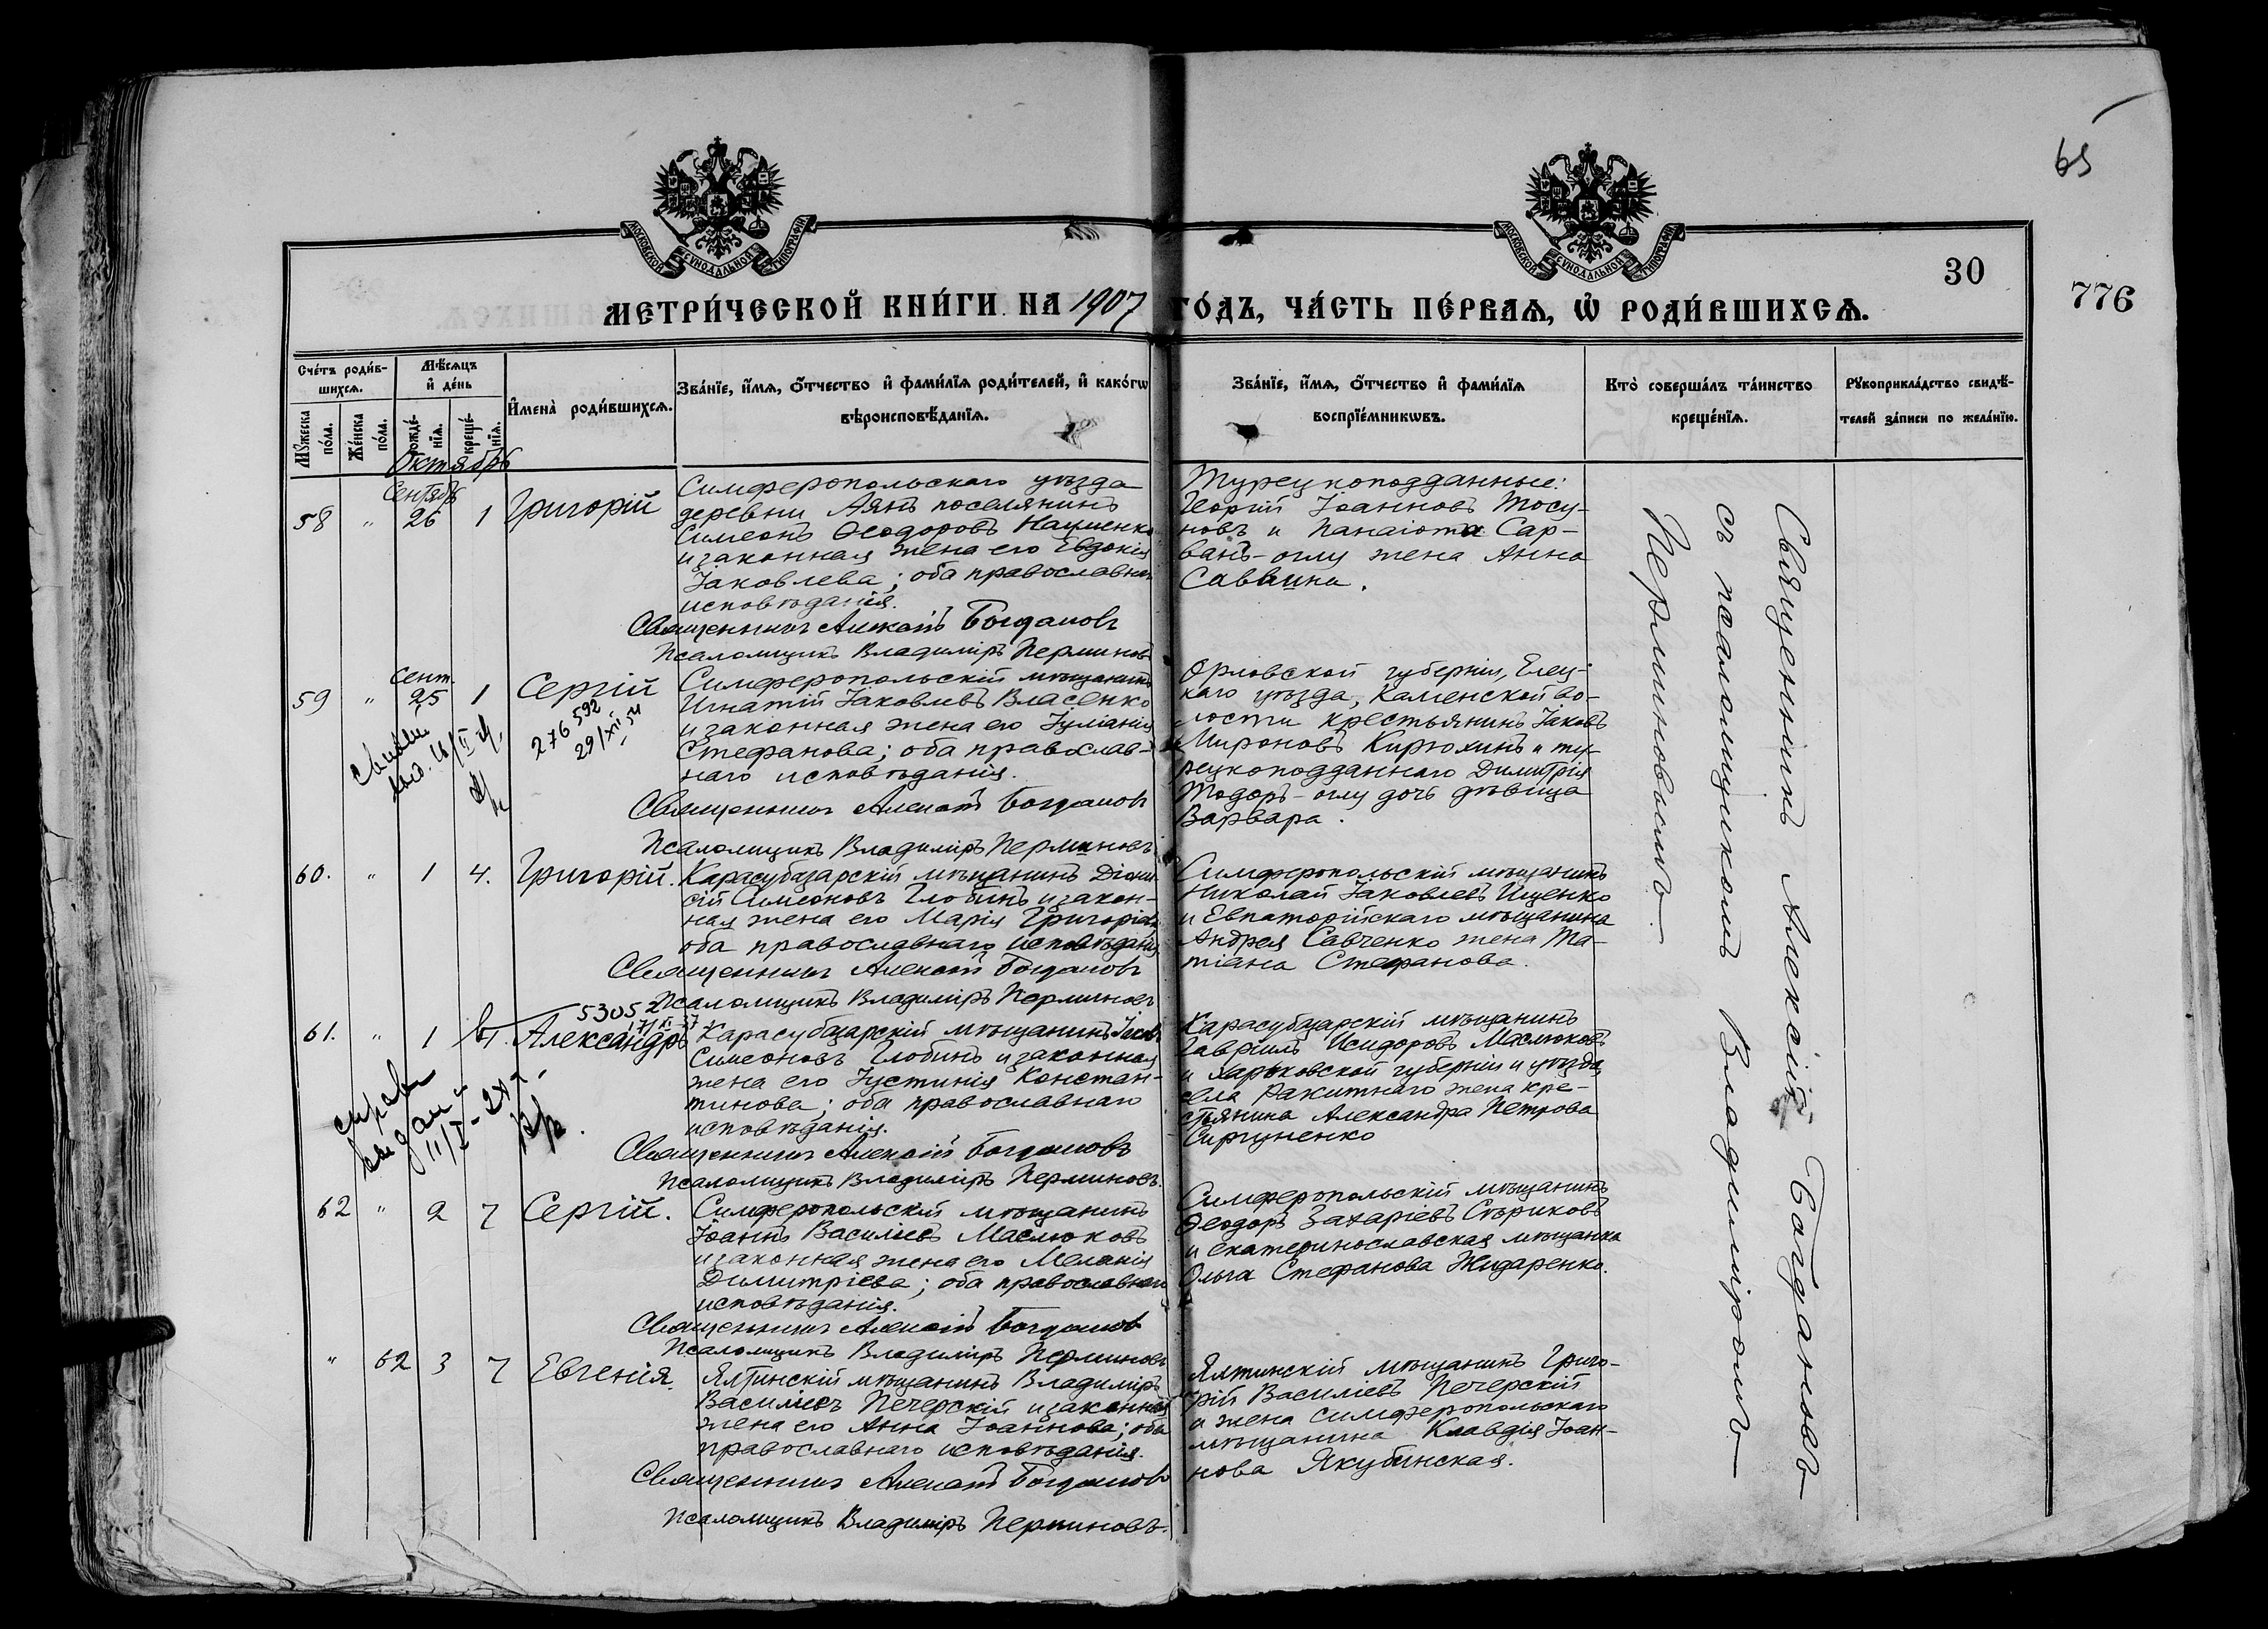 65
МОСКОВСКОЙ СУНОДАЛЬНОЙ ТИПОГРАФІИ
МОСКОВСКОЙ СУНОДАЛЬНОЙ ТИПОГРАФІИ
30
776
МЕТРИ́ЧЕСКОЙ КНИ́ГИ НА 1907 ГО́ДЪ, ЧА́СТЬ ПЕ́РВАѦ, Ѡ҆ РОДИ́ВШИХСѦ.
Сче́тъ роди́в-
шихсѧ.
Мѣ́сѧцъ
и҆ де́нь
И҆мена̀ роди́вшихсѧ.
Зва́нїе, и҆́мѧ, ѻ҆́тчество и҆ фами́лїѧ роди́телей, и҆ како́гѡ
вѣроисповѣ́данїѧ.
Зва́нїе, и҆́мѧ, ѻ҆́тчество и҆ фами́лїѧ
воспрїе́мникѡвъ.
Кто̀ соверша́лъ та́инство
креще́нїѧ.
Рꙋкоприкла́дство свидѣ́-
телей за́писи по жела́нїю.
Мꙋ́жеска
по́ла.
Же́нска
по́ла.
рожде́-
нїѧ.
креще́-
нїѧ.
Октябрь
58 " Сентябрь 26 1 Григорій
Симферопольскаго уѣзда
деревни Аянъ поселянинъ
Симеонъ Ѳеодоровъ Науменко
и законная жена его Евдокія
Іаковлева; оба православнаго
исповѣданія.
Священникъ Алексій Богдановъ
Псаломщикъ Владиміръ Перминовъ
Турецкоподданные:
Георгій Іоанновъ Тосу-
новъ и Панаіота Сар-
ванъ-оглу жена Анна
Саввина.
59 " Сент. 25 1 Сергій
276592
29/XII 54
Симферопольскій мѣщанинъ
Игнатій Іаковлевъ Власенко
и законная жена его Іуліанія
Стефанова; оба православ-
наго исповѣданія.
Священникъ Алексій Богдановъ
Псаломщикъ Владиміръ Перминовъ
Орловской губерніи, Елец-
каго уѣзда, Каменской во-
лости крестьянинъ Іаковъ
Мироновъ Кирюхинъ и ту-
рецкоподданнаго Димитрія
Тодоръ-оглу дочь дѣвица
Варвара.
60. " 1 4. Григорій.
Карасубазарскій мѣщанинъ Діони-
сій Симеоновъ Глобинъ и закон-
ная жена его Марія Григоріева
оба православнаго исповѣданія
Священникъ Алексій Богдановъ
Псаломщикъ Владиміръ Перминовъ
Симферопольскій мѣщанинъ
Николай Іаковлевъ Ищенко
и Евпаторійскаго мѣщанина
Андрея Савченко жена Та-
тіана Стефанова.
61. " 1 Александръ
Карасубазарскій мѣщанинъ
Симеоновъ Глобинъ и законная
жена его Іустинія Констан-
тинова; оба православнаго
исповѣданія.
Священникъ Алексій Богдановъ
Псаломщикъ Владиміръ Перминовъ.
Карасубазарскій мѣщанинъ
Гавріилъ Исидоровъ Маслюковъ
и Харьковской губерніи и уѣзда
села Ракитнаго жена кре-
стьянина Александра Петрова
62 " 2 7 Сергій.
Симферопольскій мѣщанинъ
Іоаннъ Василіевъ Маслюковъ
и законная жена его Меланія
Димитріева; оба православнаго
исповѣданія.
Священникъ Алексій Богдановъ
Псаломщикъ Владиміръ Перминовъ
Симферопольскій мѣщанинъ
Ѳеодоръ Захаріевъ Сѣриковъ
и екатеринославская мѣщанка
Ольга Стефанова Жидаренко.
" 62 3 7 Евгенія.
Ялтинскій мѣщанинъ Владиміръ
Василіевъ Печерскій и законная
жена его Анна Іоаннова; оба
православнаго исповѣданія.
Священникъ Алексій Богдановъ
Псаломщикъ Владиміръ Перминовъ.
Ялтинскій мѣщанинъ Григо-
рій Василіевъ Печерскій
и жена симферопольскаго
мѣщанина Клавдія Іоан-
нова Якубинская.
Священникъ Алексій Богдановъ
съ псаломщикомъ Владиміромъ
Перминовымъ.